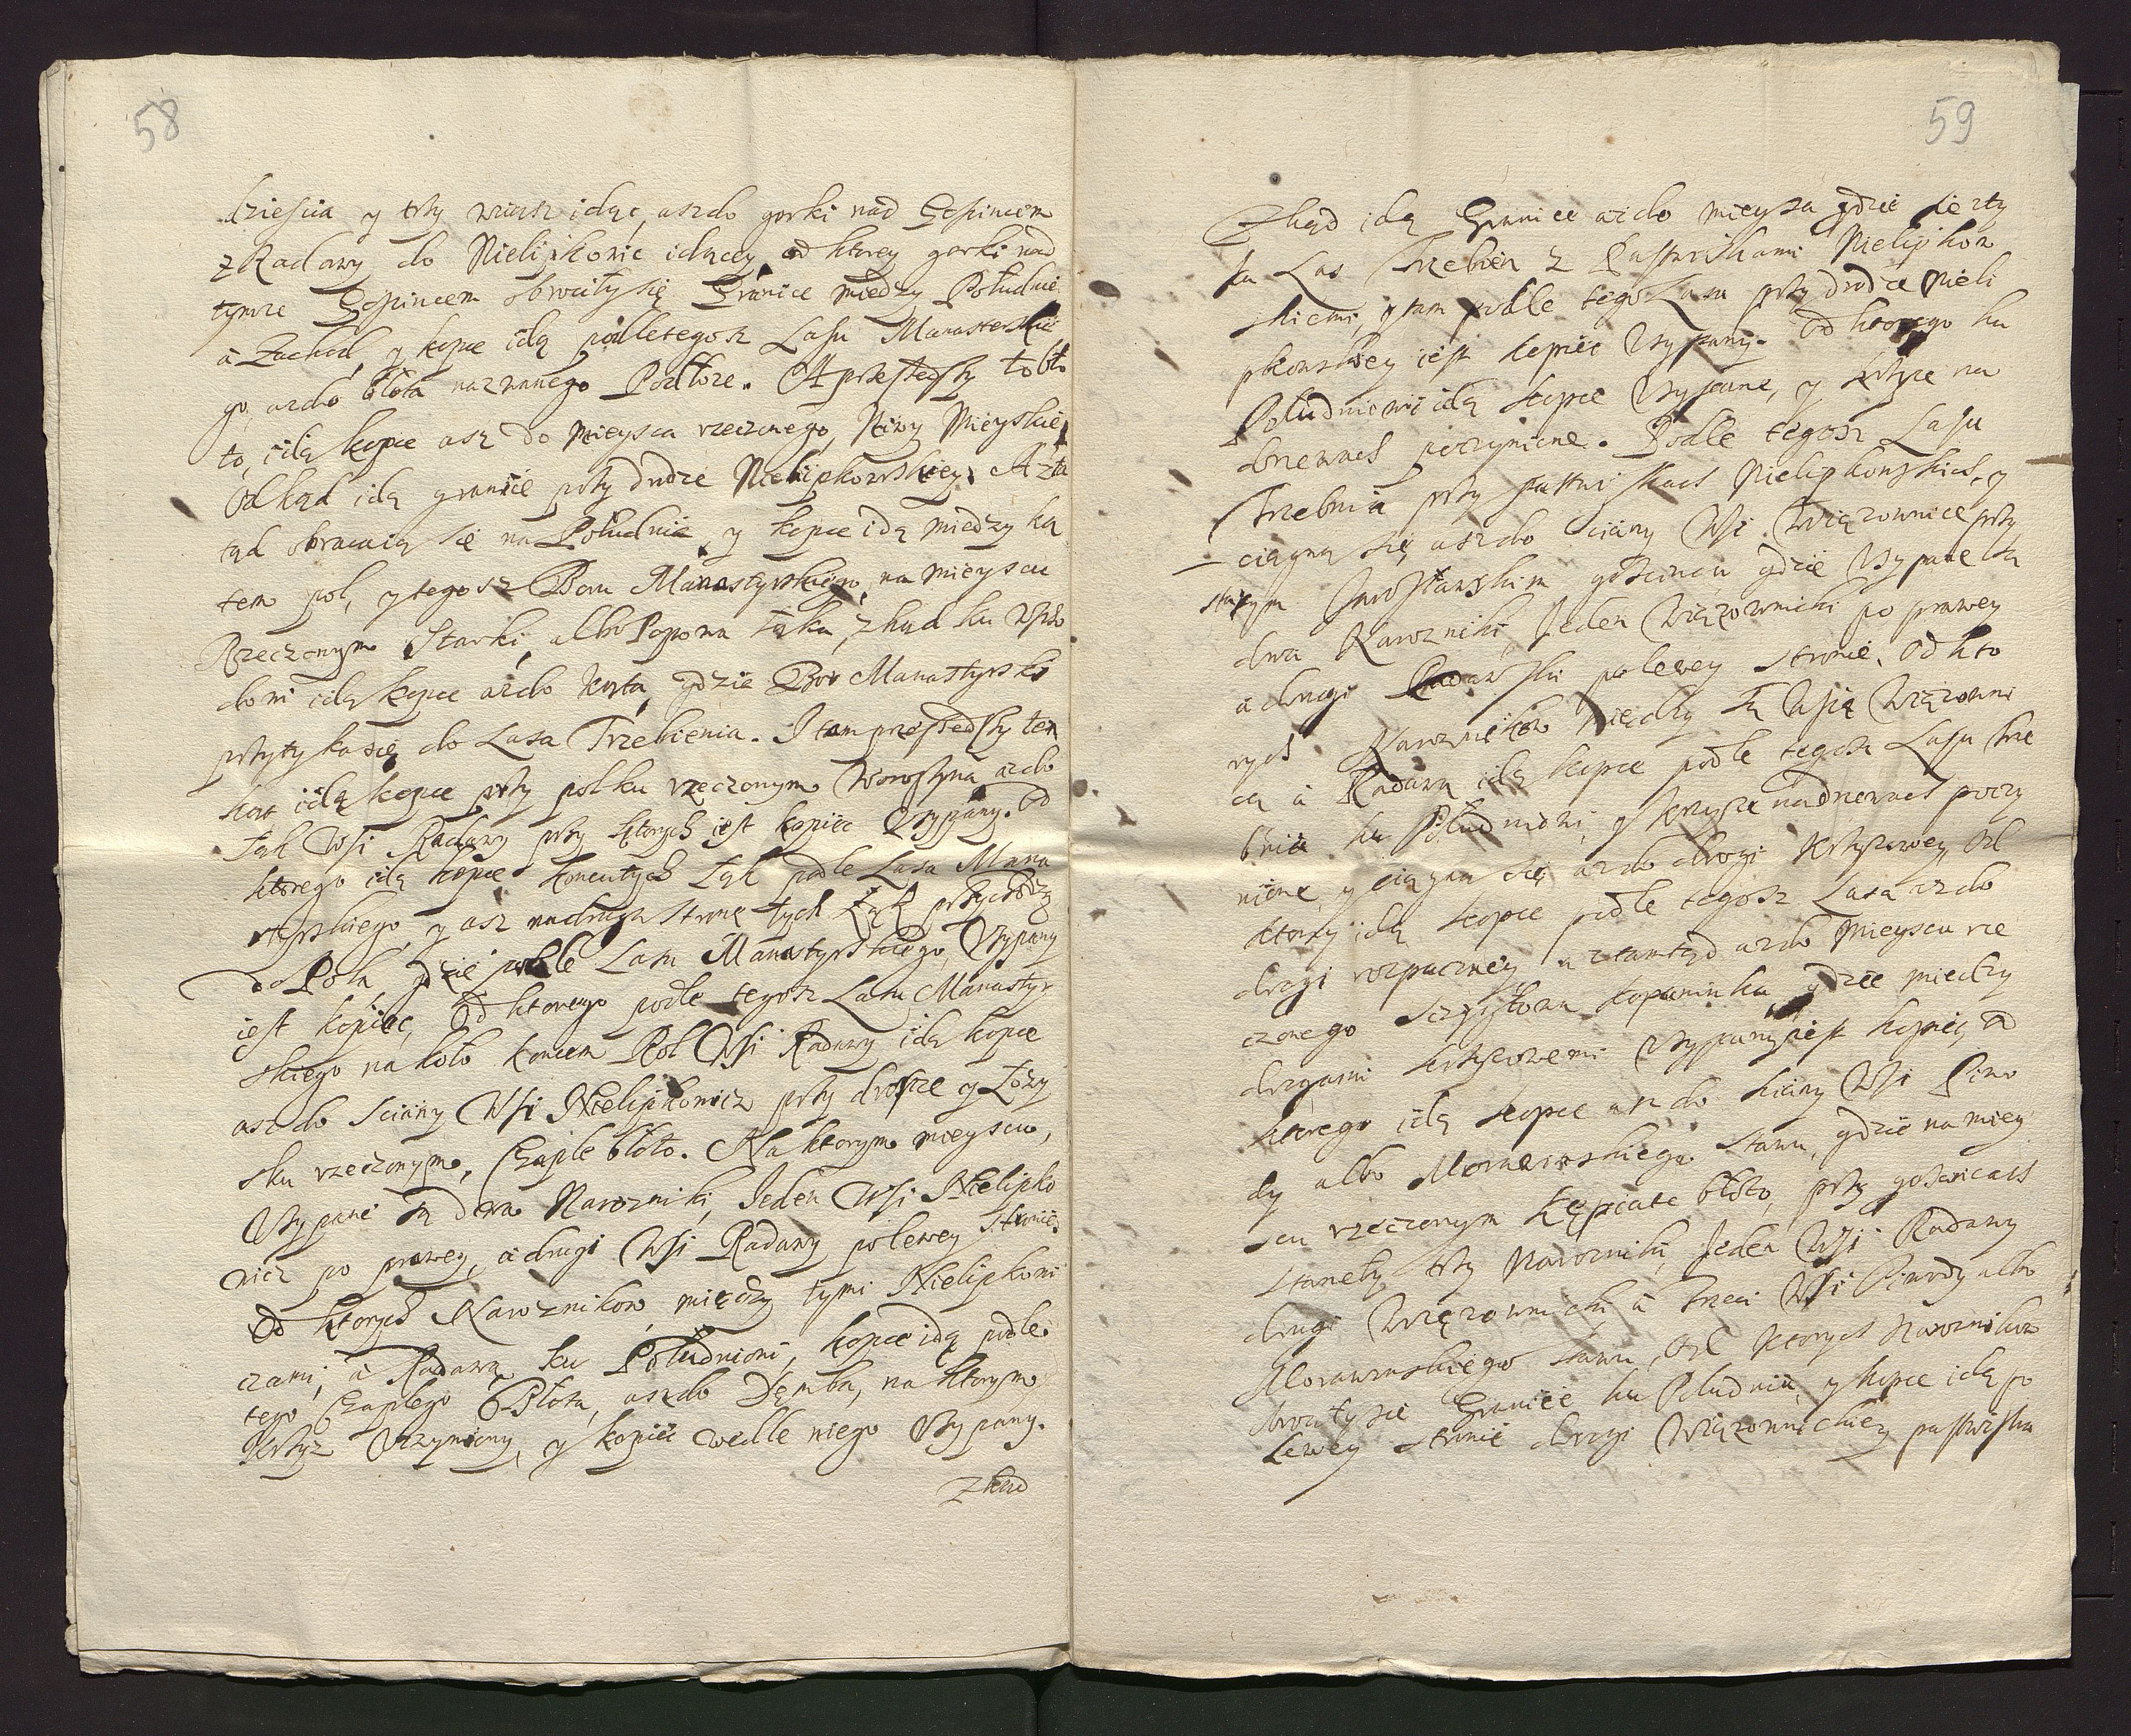 58
dzieścia y trzy wziasz idąc, aszdo gorki nad Gościncem
z Radawy do Nielipkowic idącey, od ktorey gorki nad
tymze Gościncem obrociły się Granice między Południe
à Zachod, y kopce idą podle tegosz Lasu Manasterskie
go, azdo błota nazwanego Podłoze. A przeszedszy to bło
to, idą kopce asz do Mieysca rzeczonego, Niwy Mieyskiey
Odkąd idą granice przy drodze Nielipkowskiey. A ztą
tąd obracaią się na Południe, y kopce idą miedzy ką
tem pol, y tegosz Boru Manastyrskiego, na mieyscu
Rzeczonym Starki, albo Popowa łąka, zkąd ku Wscho
dowi idą kopce azdo kąta, gdzie Bor Manastyrski
przytyka się do Lasa Trzebienia. I tam przeszedszy ten
kąt idą kopce przy polku rzeczonym Worostyna azdo
Łąk Wsi Radawy przy ktorych iest kopiec Usypany. Od
ktorego idą kopce koncem tych Łąk podle Lasa Mana
styrskiego, y asz nadrugą stronę tych Łąk przychodzą
do Pola, gdzie podle Lasu Manastyrskiego, Usypany
iest kopiec, Od ktorego podle tegosz Lasu Manastyr
skiego nakoło koncem Rol Wsi Radawy idą kopce
aszdo Sciany Wsi Nielipkowicz przy drodze y Łozy
sku rzeczonym, Czaple błoto. Na ktorym mieyscu,
Usypane są dwa Narozniki, Jeden Wsi Nielipko
wicz po prawey, à drugi Wsi Radawy polewey stronie.
Od ktorych Naroznikow, między tymi Nielipkowi
czami, à Radawą ku Południowi, kopce idą podle
tego Czaplego Błota, aszdo Dęmba, na ktorym
krzyz Uczyniony, y kopiec wedle niego Usypany.
Zkąd
59
Zkąd idą Granice azdo mieysca gdzie się sty
ka Las Trzebien z Pastwiskami Nielipkow
skiemi, y tam podle tego Lasu przy drodze Nieli
pkowskiey iest kopiec Usypany. Od ktorego ku
Południowi idą kopce Usypane, y krzyze na
drzewach poczynione. Podle tegosz Lasu
Trzebnia przy pastwiskach Nielipkowskich, y
ciągną się, aszdo sciany Wsi Wiązownice przy
starym Jarosławskim gościncu gdzie Usypane są
dwa Narozniki, Jeden Wiązownicki po prawey
à drugi Radawski polewey stronie. Od kto
rych Naroznikow między tą Wsią Wiązowni
cą à Radawą idą kopce podle tegosz Lasu Trze
bnia ku Południowi, y krzyze nadrzewach poczy
nione, y ciągną się azdo drogi krzyzowey, Od
ktorey idą kopce podle tegosz Lasa azdo
drogi rozpaczney, a ztamtąd azdo Mieysca rze
czonego Szczytowa kopaninka, gdzie miedzy
drogami krzyzowemi Usypany iest kopiec, od
ktorego idą kopce aszdo sciany Wsi Piwo
dy albo Morawskiego Stawu, gdzie na miey
scu rzeczonym Kępiate błoto, przy gościncach
stanęły trzy Narozniki, Jeden Wsi Radawy
drugi Wiązownicki, à Trzeci Wsi Piwody albo
Morawskiego stawu, Od ktorych Naroznikow
obrociły się Granice ku Południu, y kopce idą po
lewey stronie drogi Wiązownickiey pastwiska